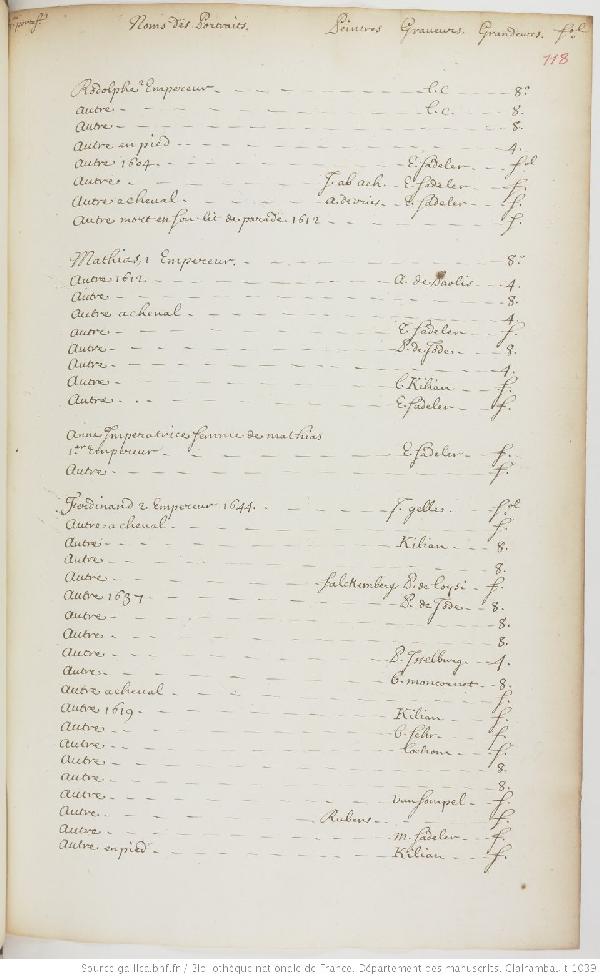 Noms des Portraits. Peintres Graveurs. Grandeurs. fol
118
Rodolphe 2 Empereur - l. c. - 8.º
Autre - l. c. - 8.
Autre - 8.
Autre en pied - 4.
Autre 1604 - E. Sadeler - fol
Autre - J. ab ach. E. Sadeler - f.
Autre a cheval - E. Sadeler - f.
Autre mort en son lit de parade 1612 - f.
Mathias, 1 Empereur. - 8.º
Autre 1612 - A. de Paolis - 4.
Autre - 8.
Autre a cheval - 4.
Autre - E. Sadeler - f.
Autre - P. de Jode - 8.
Autre - 4.
Autre - Kilian - f.
Autre - E. Sadeler - f.
Anne Imperatrice femme de mathias
1.er Empereur - E. Sadeler - f.
Autre - f.
Ferdinand 2 Empereur 1644. - J. gelle - fol
Autre a cheval - f.
Autre - Kilian - 8.
Autre - 8.
Autre - falckemberg P. de loysi - f.
Autre 1637 - P. de Jode - 8.
Autre - 8.
Autre - 8.
Autre - P. Isselburg - 4.
Autre - b. moncornet - 8.
Autre a cheval - f.
Autre 1619 - Kilian - f.
Autre - f.
Autre - f.
Autre - 8.
Autre - 8.
Autre - van sompel - f.
Autre - Rubens - f.
Autre - m. Sadeler - f.
Autre en pied - Kilian - f.
Source gallica.bnf.fr / Bibliothèque nationale de France. Département des manuscrits. Clairambault 1039